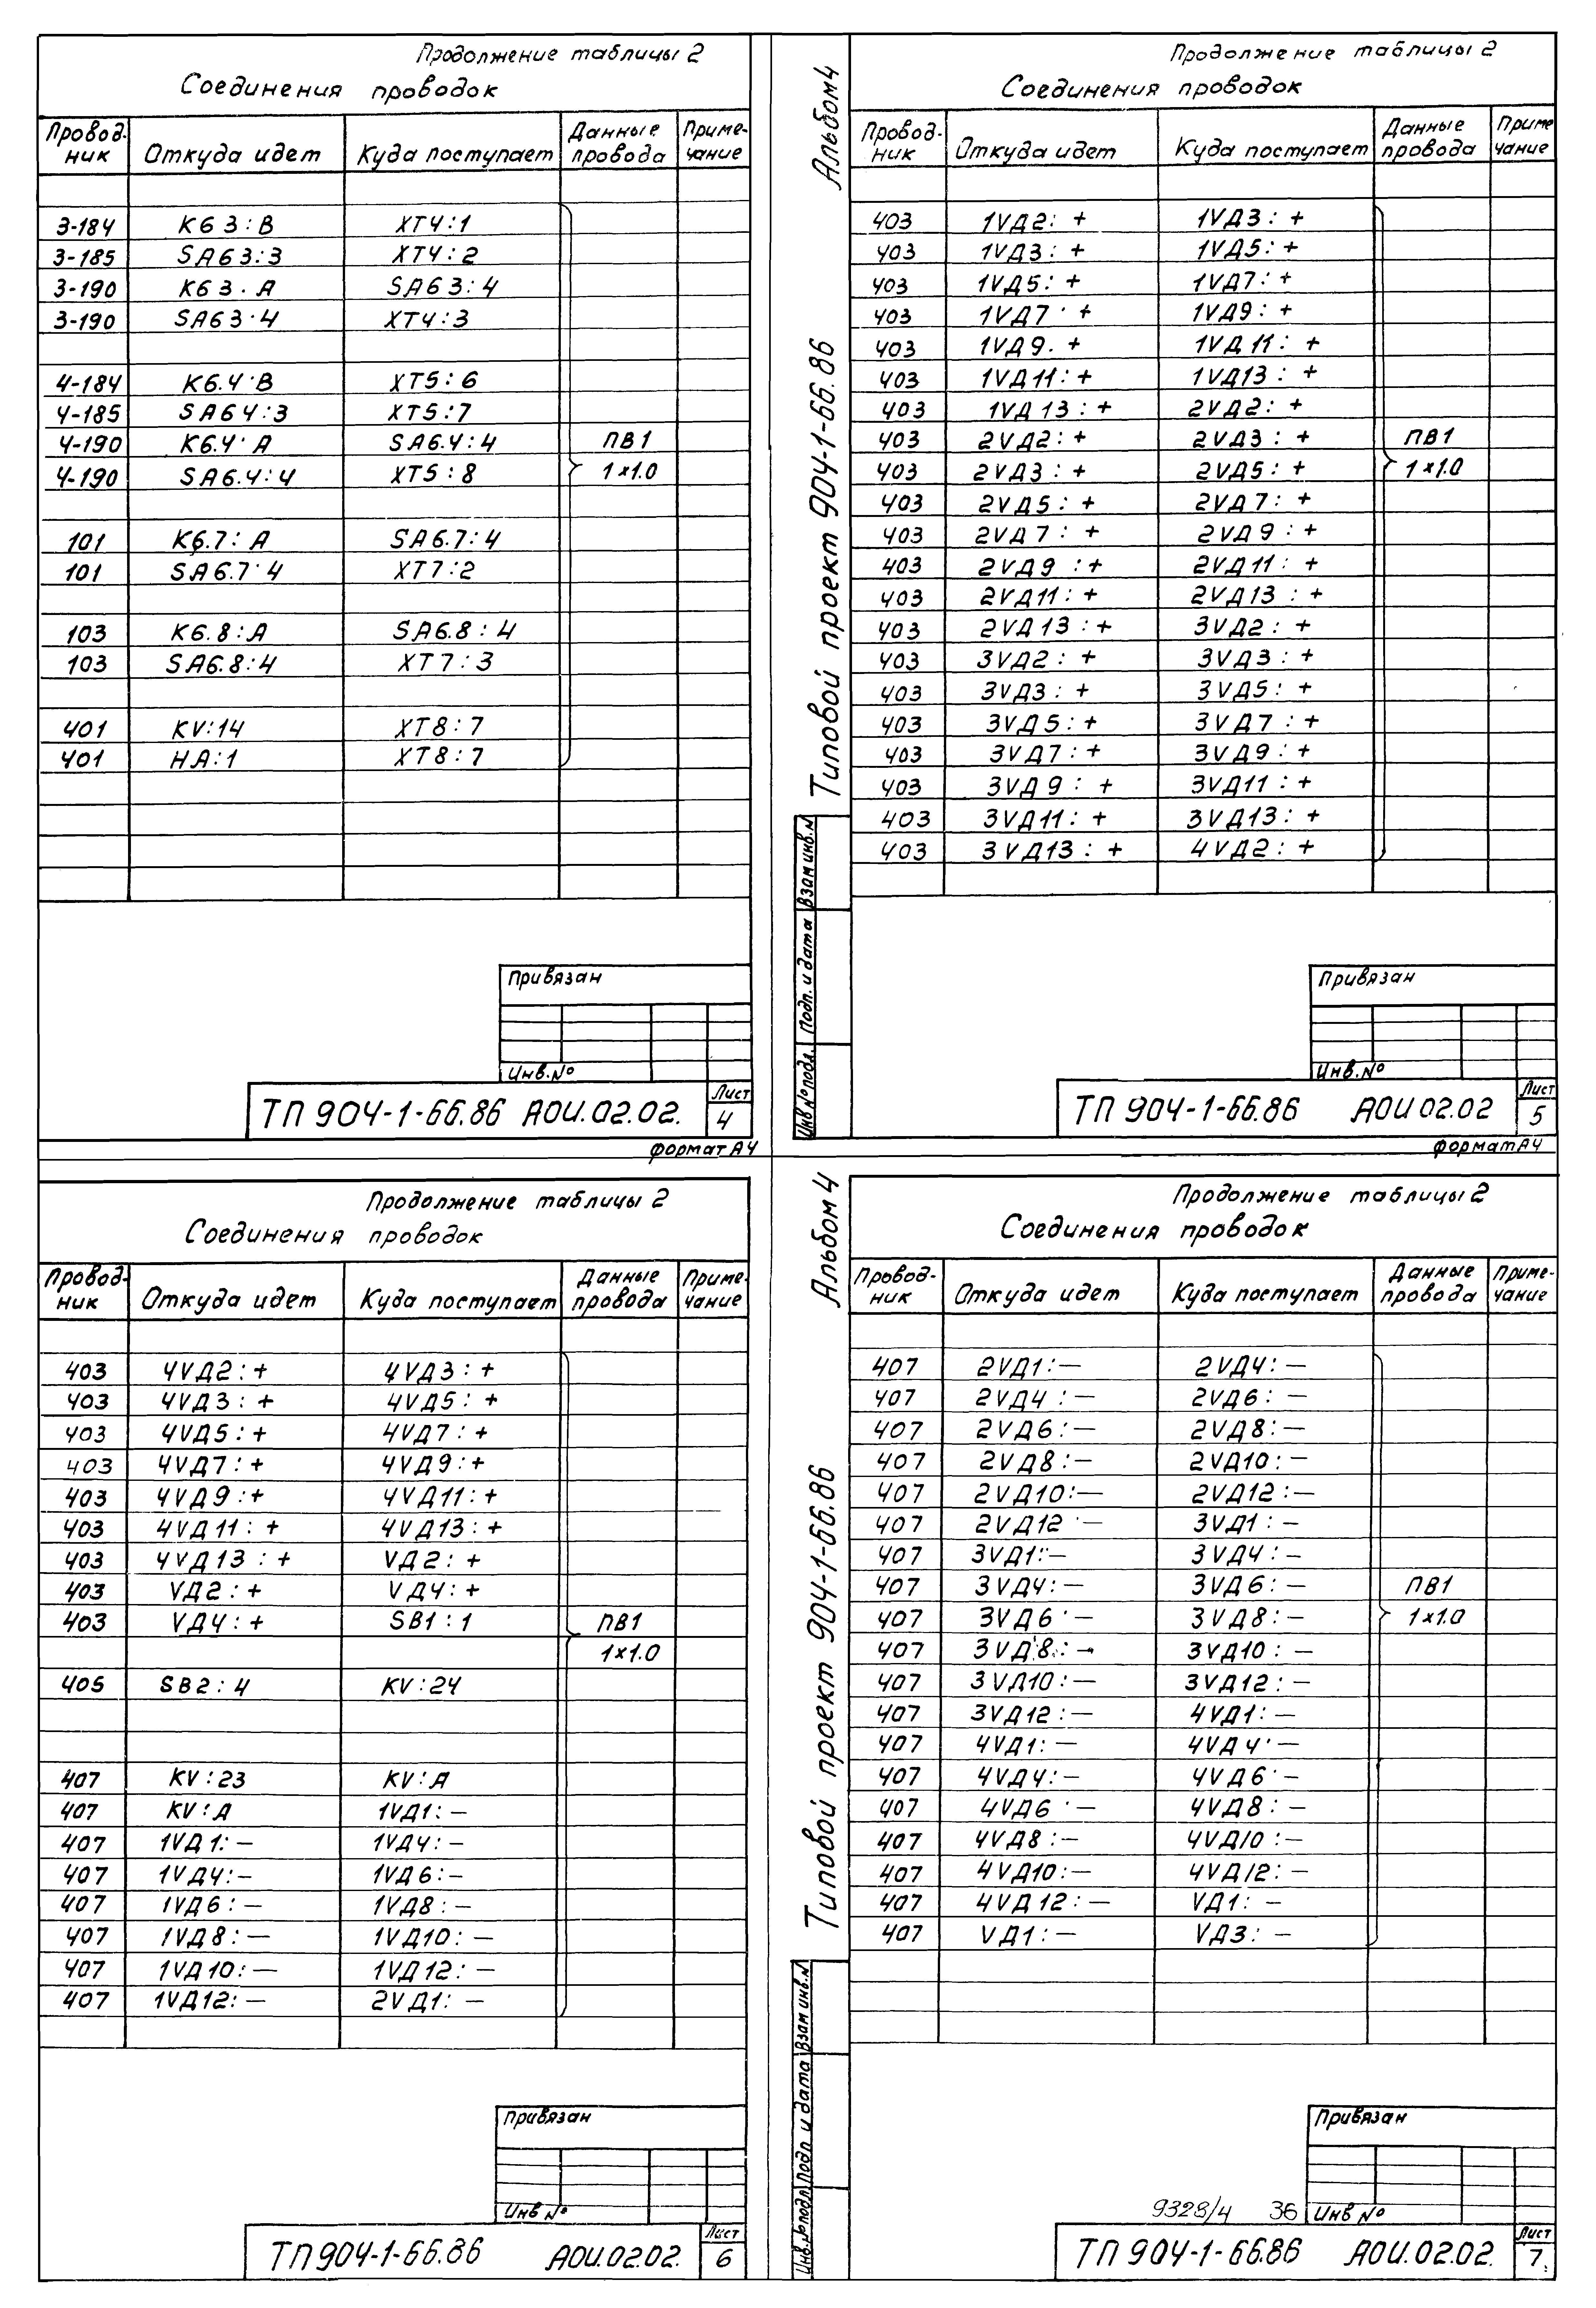 Продолжение таблицы 2
Соединения проводок
Провод- Данные Приме-
ник Откуда идет Куда поступает провода чание
3-184 К6 3:В ХТ4:1
3-185 SA6 3:3 ХТ4:2
3-190 К6 3. А SA6 3:4
3-190 SA6 3·4 ХТ4:3
4-184 К6.4·В ХТ5:6
4-185 SA6 4:3 ХТ5:7
4-190 К6.4· А SA6.4:4 ПВ1
4-190 SA6.4:4 ХТ5:8 1×1.0
101 К6.7: А SA6.7:4
101 SA6.7·4 ХТ7:2
103 К6.8:А SA6.8:4
103 SA6.8:4 ХТ7:3
401 KV:14 ХТ8:7
401 НА:1 ХТ8:7
Привязан
Инв.№
ТП 904-1-66.86 АОИ.02.02. Лист
4
формат А4
Альбом 4
Типовой проект 904-1-66.86
Взам инв.N
Подп. и дата
Инв № подл.
Продолжение таблицы 2
Соединения проводок
Провод- Данные Приме
ник Откуда идет Куда поступает провода чание
403 1VД2: + 1VД3: +
403 1VД3: + 1VД5: +
403 1VД5: + 1VД7: +
403 1VД7 · + 1VД9: +
403 1VД9. + 1VД11: +
403 1VД11: + 1VД13: +
403 1VД13: + 2VД2: +
403 2VД2: + 2VД3: + ПВ1
403 2VД3: + 2VД5: + 1×1.0
403 2VД5: + 2VД7: +
403 2VД7: + 2VД9: +
403 2VД9 :+ 2VД11: +
403 2VД11: + 2VД13: +
403 2VД13: + 3VД2: +
403 3VД2: + 3VД3: +
403 3VД3: + 3VД5: +
403 3VД5: + 3VД7: +
403 3VД7: + 3VД9: +
403 3VД9: + 3VД11: +
403 3VД11: + 3VД13: +
403 3VД13: + 4VД2: +
Привязан
Инв.№
ТП 904-1-66.86 АОИ 02.02 Лист
5
формат А4
Продолжение таблицы 2
Соединения проводок
Провод- Данные Приме-
ник Откуда идет Куда поступает провода чание
403 4VД2: + 4VД3: +
403 4VД3: + 4VД5: +
403 4VД5: + 4VД7: +
403 4VД7: + 4VД9: +
403 4VД9: + 4VД11: +
403 4VД11: + 4VД13: +
403 4VД13: + VД2: +
403 VД2: + VД4: +
403 VД4: + SB1:1 ПВ1
1×1.0
405 SB2:4 KV:24
407 KV:23 KV:А
407 KV:А 1VД1: —
407 1VД1: — 1VД4: —
407 1VД4: — 1VД6: —
407 1VД6: — 1VД8: —
407 1VД8: — 1VД10: —
407 1VД10: — 1VД12: —
407 1VД12: — 2VД1: —
Привязан
Инв №
ТП 904-1-66.86 АОИ.02.02. Лист
6
Альбом 4
Типовой проект 904-1-66.86
Взам инв.N
Подп и дата
Инв.№ подл
Продолжение таблицы 2
Соединения проводок
Провод- Данные Приме-
ник Откуда идет Куда поступает провода чание
407 2VД1: — 2VД4: —
407 2VД4: — 2VД6: —
407 2VД6: — 2VД8: —
407 2VД8: — 2VД10: —
407 2VД10: — 2VД12: —
407 2VД12 · — 3VД1: —
407 3VД1: — 3VД4: —
407 3VД4: — 3VД6: — ПВ1
407 3VД6 · — 3VД8: — 1×1.0
407 3VД8: — 3VД10: —
407 3VД10: — 3VД12: —
407 3VД12: — 4VД1: —
407 4VД1: — 4VД4· —
407 4VД4: — 4VД6· —
407 4VД6 · — 4VД8: —
407 4VД8: — 4VД10: —
407 4VД10: — 4VД12: —
407 4VД12: — VД1: —
407 VД1: — VД3: —
Привязан
9328/4 36 Инв №
ТП 904-1-66.86 АОИ.02.02. Лист
7